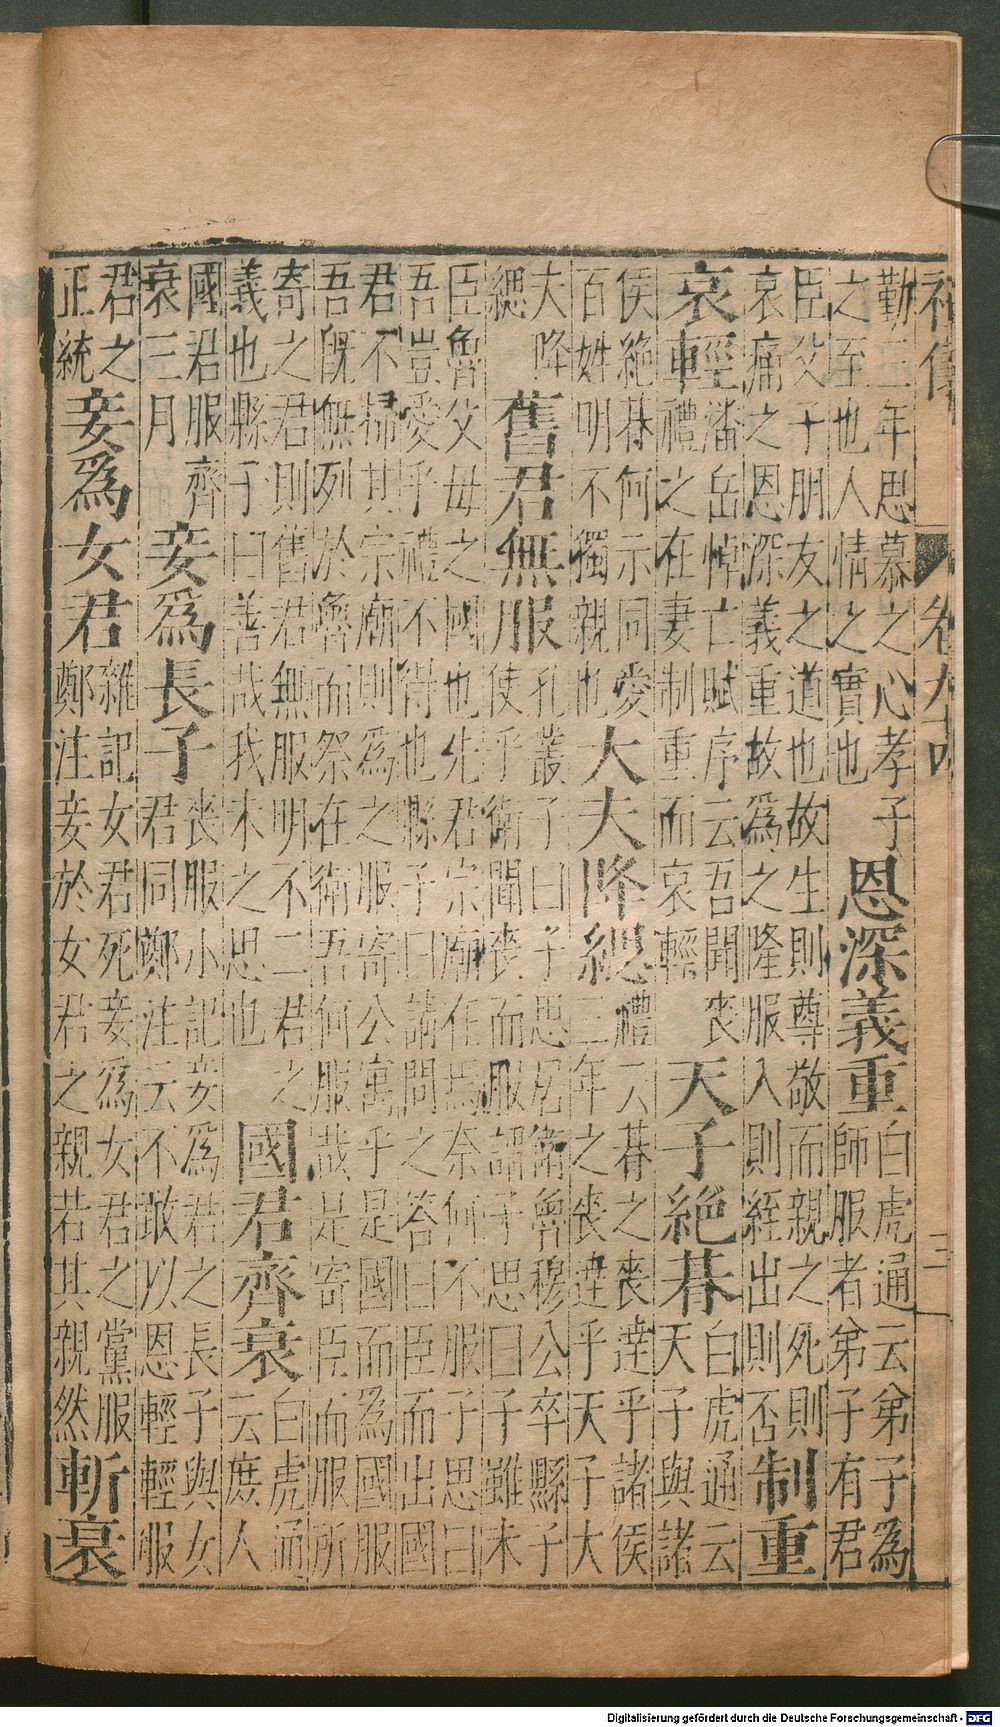 卷九十四
三
勤三年思慕之心孝子
之至也人情之實也
恩深義重
白虎通云弟子爲
師服者弟子有君
臣父子朋友之道也故生則尊敬而親之死則
哀痛之恩深義重故爲之隆服入則絰出則否
制重
哀輕
潘岳悼亡賦序云吾聞喪
禮之在妻制重而哀輕
天子絶朞
白虎通云
天子與諸
侯絶朞何示同愛
百姓明不獨親也
大夫降緦
禮云朞之喪達乎諸侯
三年之喪達乎天子大
夫降
緦
舊君無服
孔叢子曰子思居衛魯穆公卒縣子
使乎衛聞喪而服謂子思曰子雖未
臣魯父母之國也先君宗廟在焉奈何不服子思曰
吾豈愛乎禮不得也縣子曰請問之答曰臣而出國
君不掃其宗廟則爲之服寄公寓乎是國而爲國服
吾旣無列於魯而祭在衛吾何服哉是寄臣而服所
寄之君則舊君無服明不二君之
義也縣子曰善哉我未之思也
國君齊衰
白虎通
云庶人
國君服齊
衰三月
妾爲長子
喪服小記妾爲君之長子與女
君同鄭注云不敢以恩輕輕服
君之
正統
妾爲女君
雜記女君死妾爲女君之黨服
鄭注妾於女君之親若其親然
斬衰
Digitalisierung gefördert durch die Deutsche Forschungsgemeinschaft - DFG